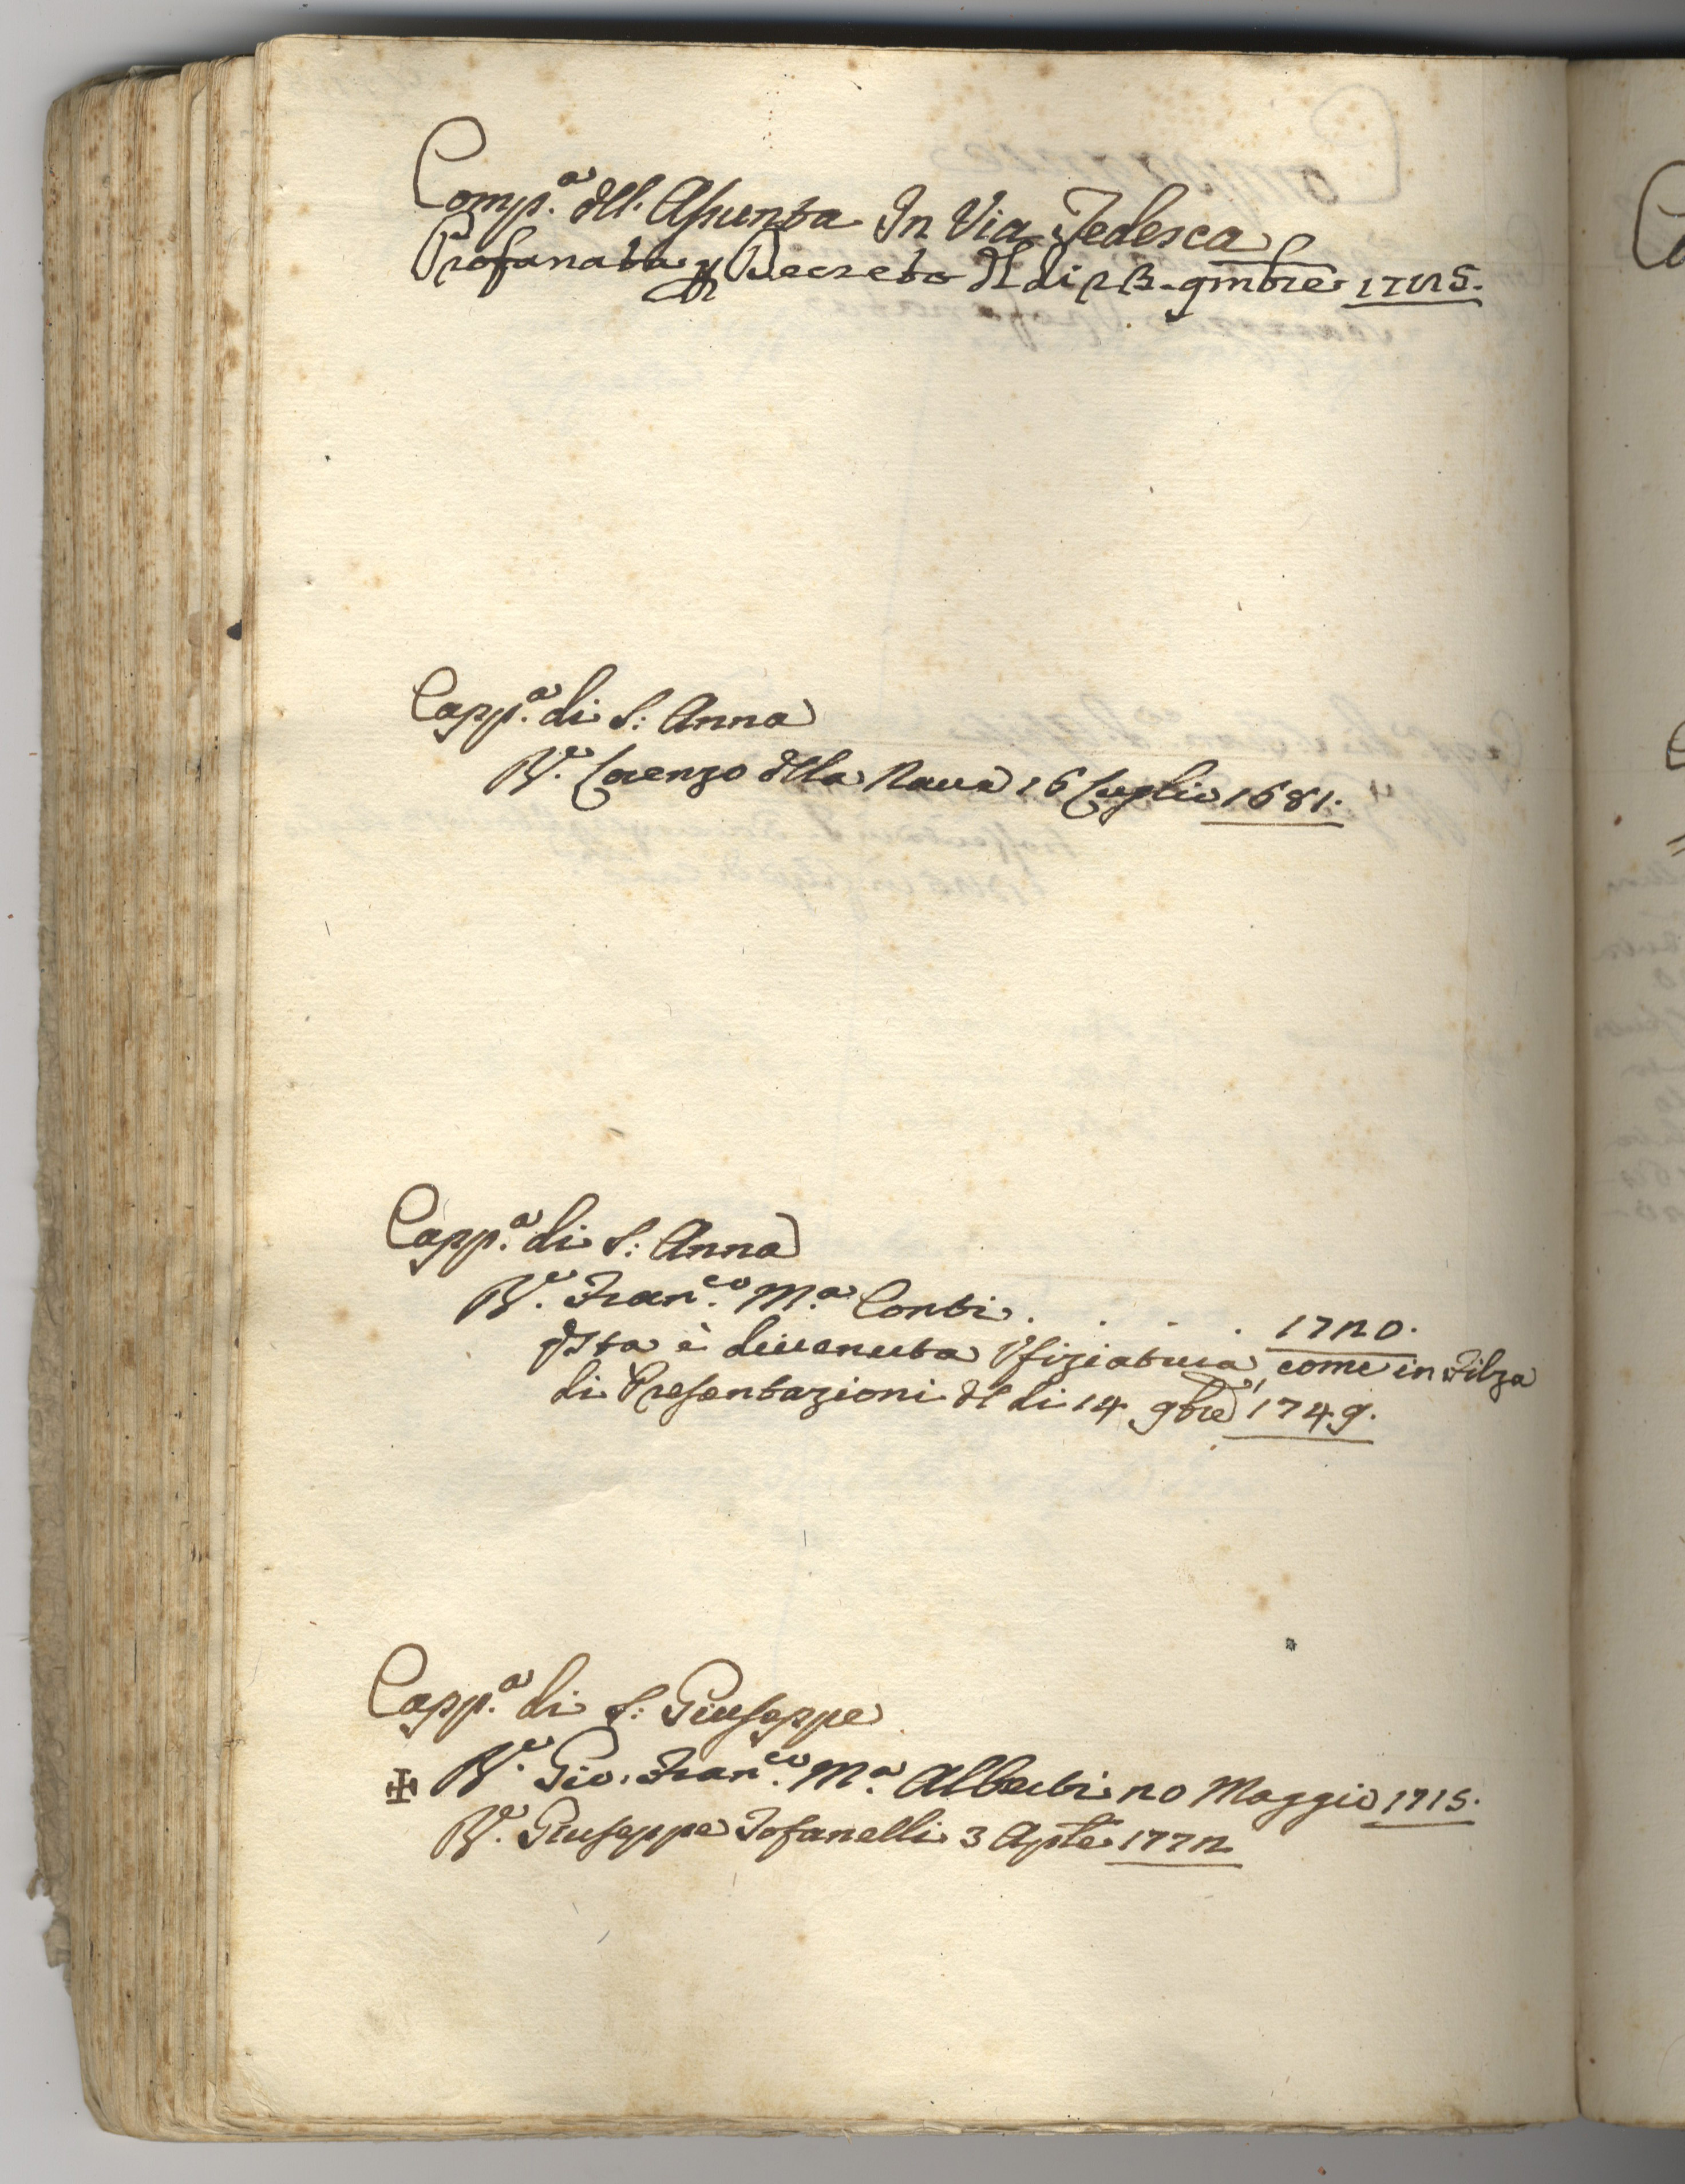 Comp.a dll. Assunta In Via Tedesca
Profanata p Decreto dl di 23. 9mbre 1725.
Capp.a di S: Anna
Re. Lorenzo dlla Nave 16 Luglio 1681.
Capp.a di S: Anna
Re. Fran.co M.a Conti . . . . 1720.
qsta è divenuta Ufiziatura, come in Filza
di Presentazioni dl di 14. 9bre 1749.
Capp.a di S: Giuseppe
✠ Re. Gio. Fran.co M.a Alberti 20 Maggio 1715.
Re. Giuseppe Tofanelli 3 Aple 1772